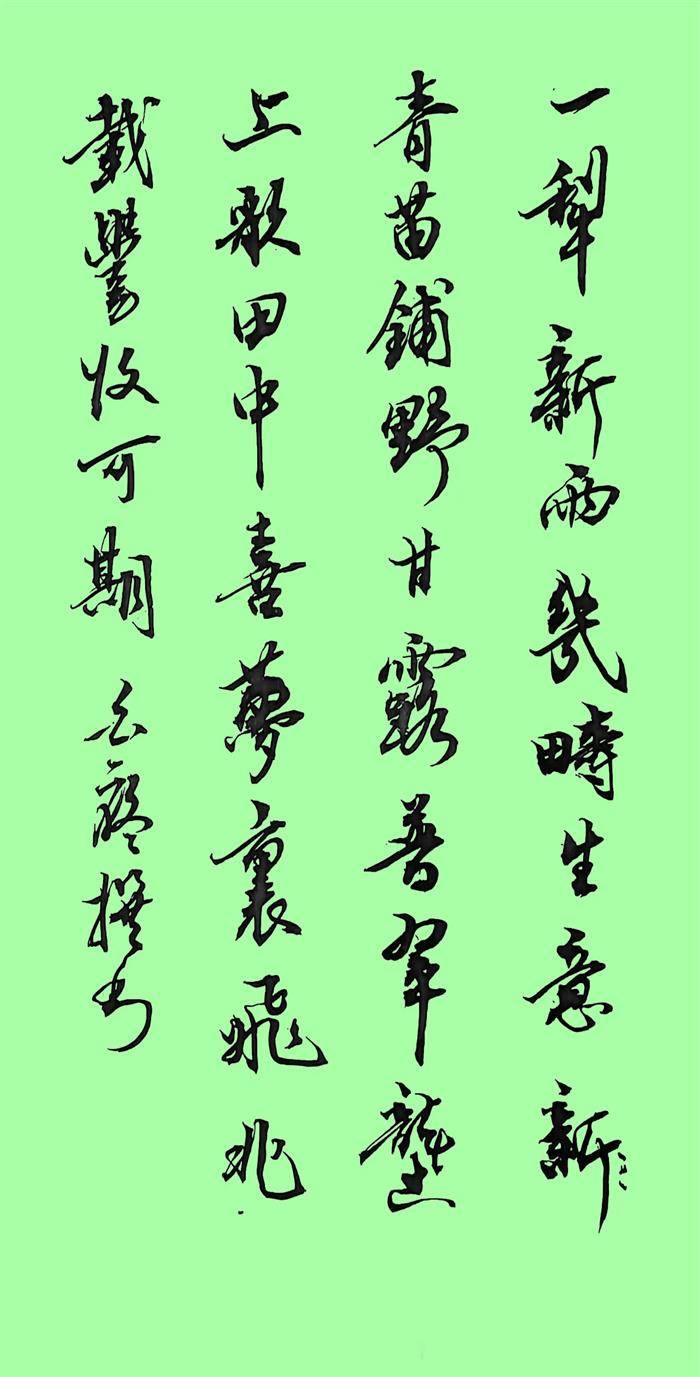 一犁新雨幾疇生意新
青苗鋪野甘露普翠壟
上歌田中喜夢裏飛兆
載豐收可期 撰書